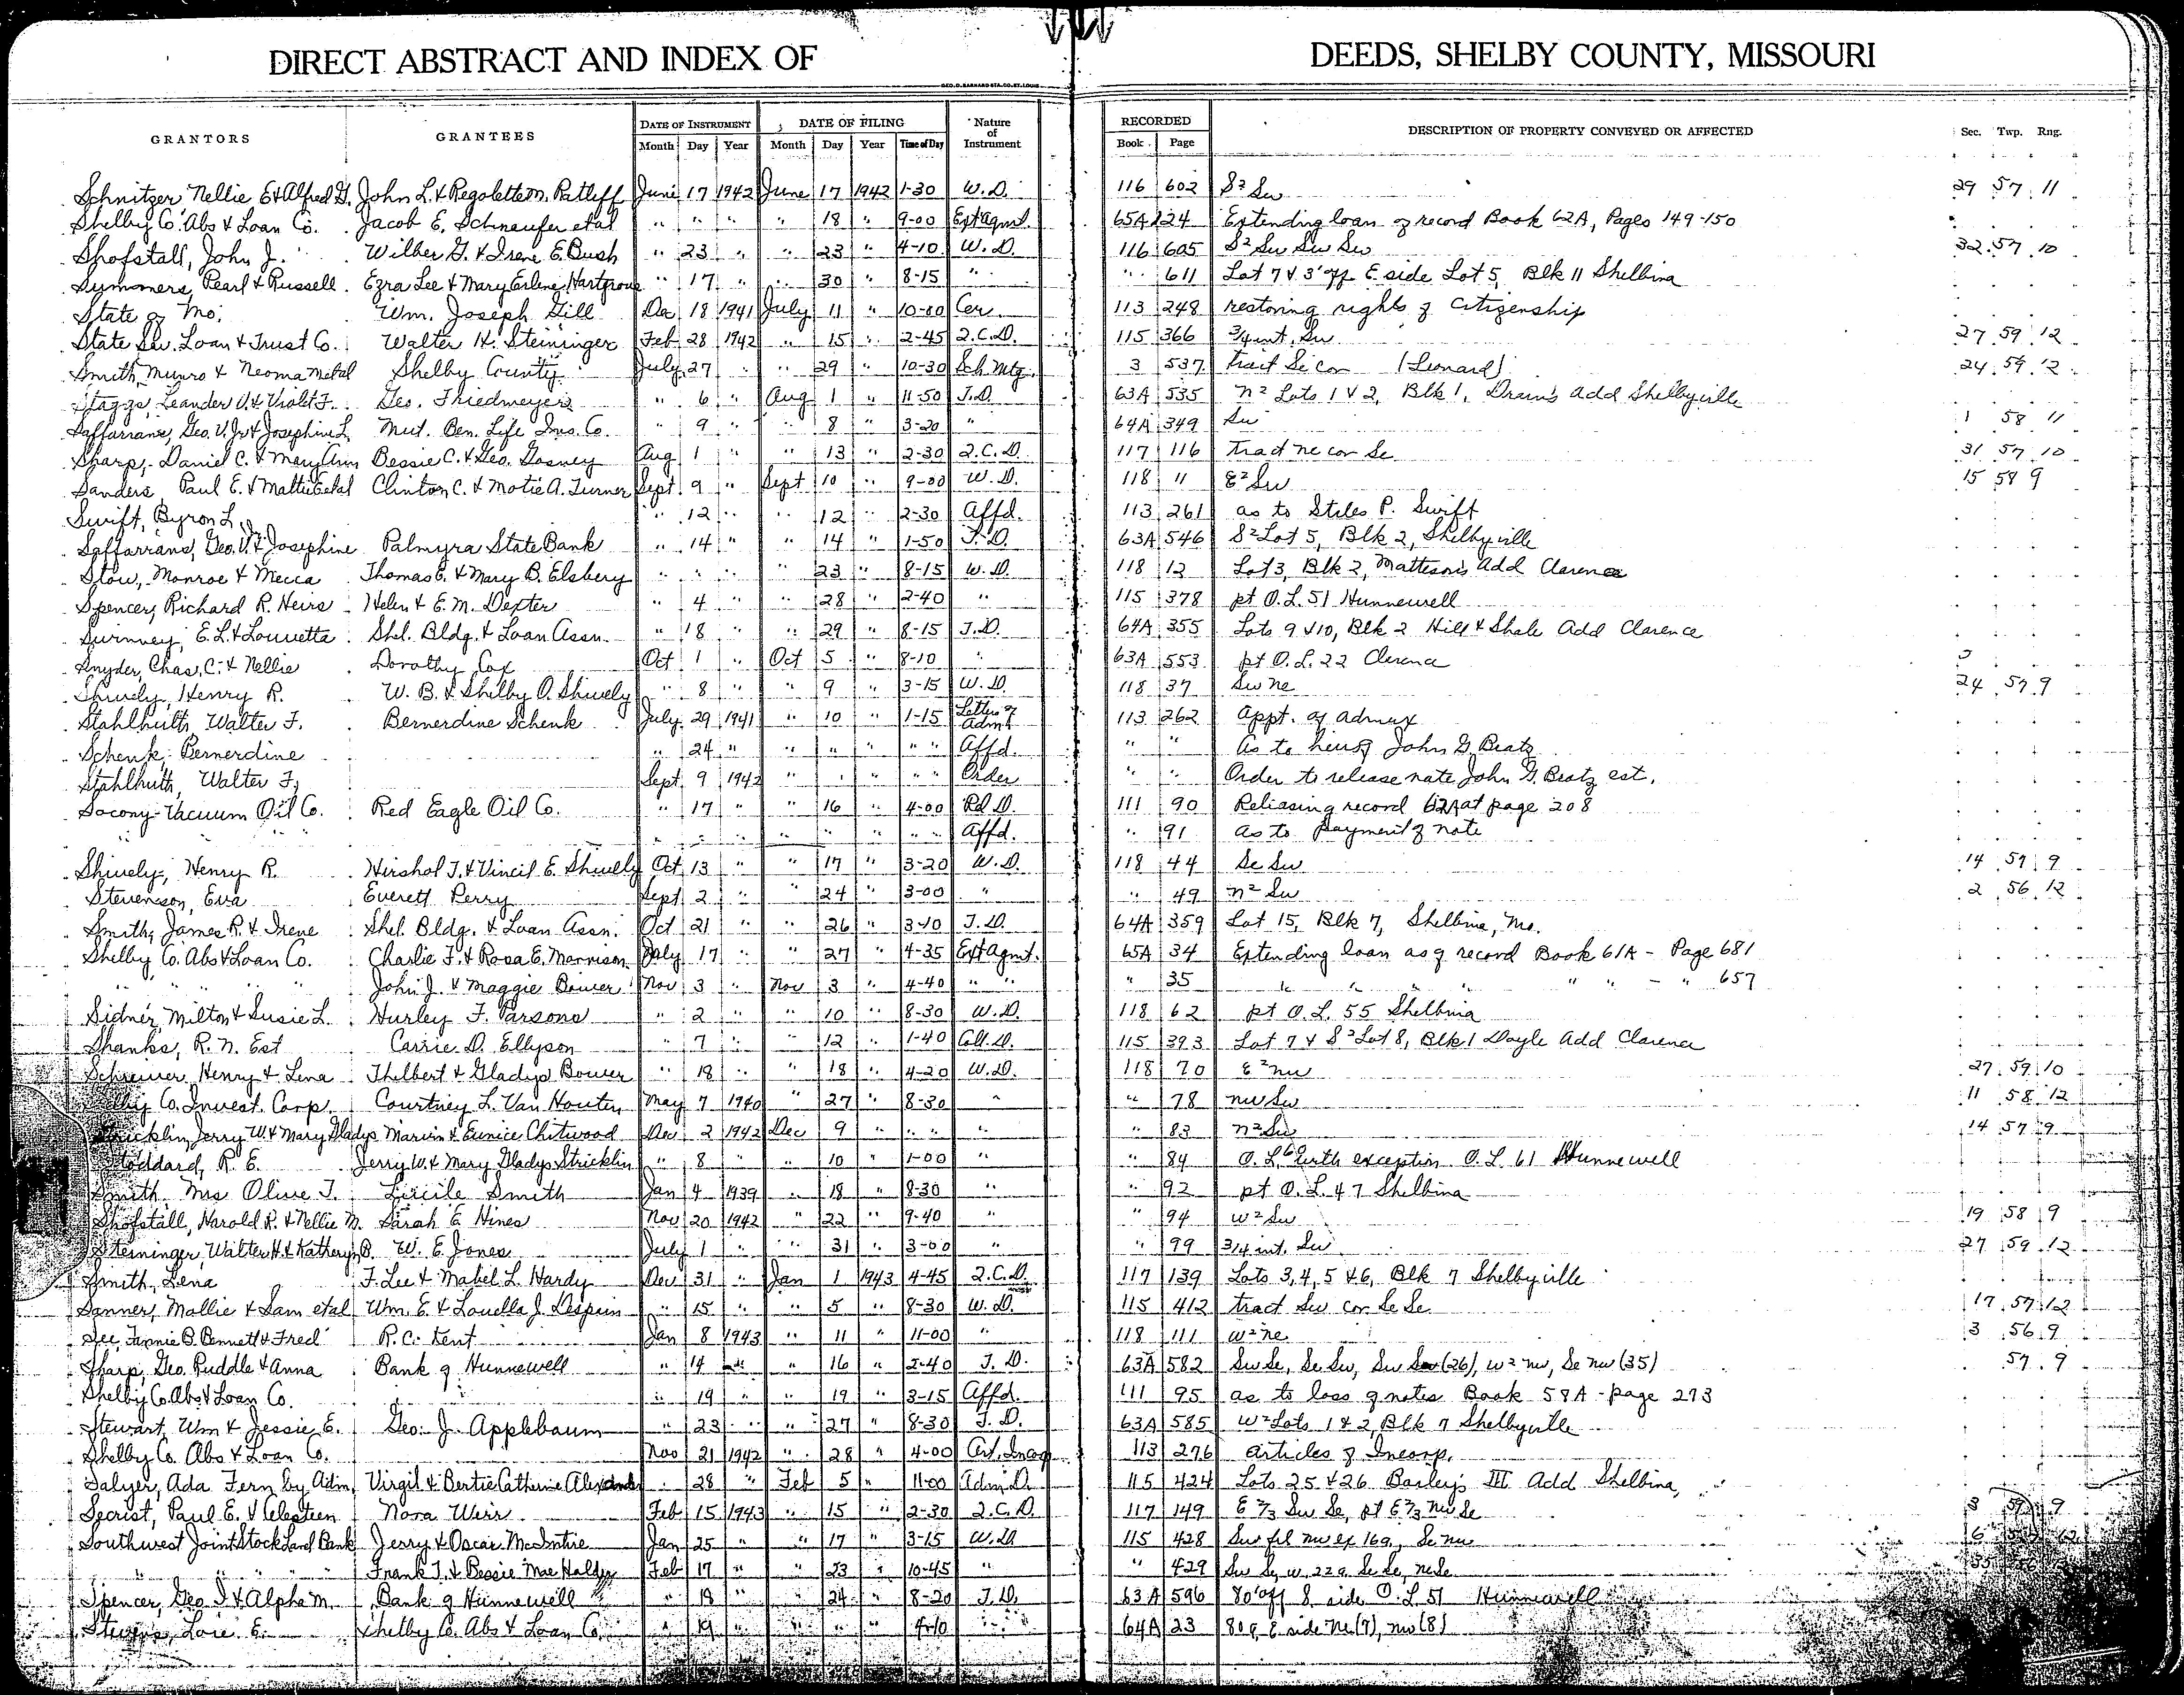 DIRECT ABSTRACT AND INDEX OF DEEDS, SHELBY COUNTY, MISSOURI
GEO. D. BARNARD STA. CO. ST. LOUIS
GRANTORS GRANTEES DATE OF INSTRUMENT DATE OF FILING Nature of Instrument RECORDED DESCRIPTION OF PROPERTY CONVEYED OR AFFECTED Sec. Twp. Rng.
Month Day Year Month Day Year Time of Day Book Page
Schnitzer, Nellie E & Alfred G. John L. & Regolette M. Ratliff June 17 1942 June 17 1942 1-30 W.D. 116 602 S² Sw 29 57 11
Shelby Co. Abs & Loan Co. Jacob E. Schneufer etal " " " " 18 " 9-00 Ext Agmt. 65A 224 Extending loan of record Book 62A, Pages 149-150
Shofstall, John J. Wilber G. & Irene E. Bush " 23 " " 23 " 4-10 W.D. 116 605 S² Sw Sw Sw 32 57 10
Summers, Pearl & Russell Ezra Lee & Mary Erlene Hartgrove " 17 " " 30 " 8-15 " " 611 Lot 7 & 3' off E side Lot 5, Blk 11 Shelbina
State of Mo. Wm. Joseph Gill Dec 18 1941 July 11 " 10-00 Cer. 113 248 restoring rights of citizenship
State Sav. Loan & Trust Co. Walter H. Steininger Feb 28 1942 " 15 " 2-45 Q.C.D. 115 366 3/4 int. Sw 27 59 12
Smith, Munro & Neoma etal Shelby County July 27 " " 29 " 10-30 Sch Mtg. 3 537 tract Se cor (Leonard) 24 59 12
Staggs, Leander V. & Violet F. Geo. Friedmeyer " 6 " Aug 1 " 11-50 T.D. 63A 535 N² Lots 1 & 2, Blk 1, Drain's Add Shelbyville
Saffarrans, Geo. V. Jr & Josephine L. Mut. Ben. Life Ins. Co. " 9 " " 8 " 3-20 " 64A 349 Sw 1 58 11
Sharp, Daniel C. & Mary Ann Bessie C. & Geo. Gosney Aug 1 " " 13 " 2-30 Q.C.D. 117 116 tract ne cor Se 31 57 10
Sanders, Paul E. & Mattie etal Clinton C. & Motie A. Turner Sept. 9 " Sept 10 " 9-00 W.D. 118 11 E² Sw 15 58 9
Swift, Byron L. " 12 " 12 " 2-30 Affd. 113 261 as to Stiles P. Swift
Saffarrans, Geo. V. Jr. & Josephine Palmyra State Bank " 14 " " 14 " 1-50 T.D. 63A 546 S² Lot 5, Blk 2, Shelbyville
Stow, Monroe & Mecca Thomas E. & Mary B. Elsbery " " " " 23 " 8-15 W.D. 118 12 Lot 3, Blk 2, Matteson's Add Clarence
Spencer, Richard R. Heirs Helen & E.M. Dexter " 4 " 28 " 2-40 " 115 378 pt O.L. 51 Hunnewell
Swinney, E.L. & Louvetta Shel. Bldg. & Loan Assn. " 18 " " 29 " 8-15 T.D. 64A 355 Lots 9 & 10, Blk 2 Hill & Shale Add Clarence
Snyder, Chas. C. & Nellie Dorothy Cox Oct 1 " Oct 5 " 8-10 " 63A 553 pt O.L. 22 Clarence
Shively, Henry R. W.B. & Shelby O. Shively " 8 " " 9 " 3-15 W.D. 118 37 Sw ne 24 57 9
Stahlhuth, Walter F. Bernerdine Schenk July 29 1941 " 10 " 1-15 Letters of Admt 113 262 Appt. of admrx
Schenk Bernerdine " 24 " " " " " " Affd. " " As to heirs of John G. Bratz
Stahlhuth, Walter F. Sept 9 1942 " " " " Order " " Order to release note John G. Bratz est.
Socony-Vacuum Oil Co. Red Eagle Oil Co. " 17 " " 16 " 4-00 Rel D. 111 90 Releasing record 62A at page 208
" " " " " " " " " " Affd. " 91 as to payment of note
Shively, Henry R. Hirshol T. & Vincil E. Shively Oct 13 " " 17 " 3-20 W.D. 118 44 Se Sw 14 57 9
Stevenson, Eva Everett Perry Sept 2 " " 24 " 3-00 " " 49 N² Sw 2 56 12
Smith, James R. & Irene Shel. Bldg. & Loan Assn. Oct 21 " " 26 " 3-10 T.D. 64A 359 Lot 15, Blk 7, Shelbina, Mo.
Shelby Co. Abs & Loan Co. Charlie F. & Rosa E. Morrison July 17 " " 27 " 4-35 Ext Agmt. 65A 34 Extending loan as of record Book 61A - Page 681
" " " " John J. & Maggie Bower Nov 3 " Nov 3 " 4-40 " " " 35 " " " " " " - " 657
Sidner, Milton & Susie L. Hurley F. Parsons " 2 " 10 " 8-30 W.D. 118 62 pt O.L. 55 Shelbina
Shanks, R.N. Est Carrie D. Ellyson " 7 " " 12 " 1-40 Coll. D. 115 393 Lot 7 & S² Lot 8, Blk 1 Doyle Add Clarence
Schreiner, Henry & Lena Thelbert & Gladys Bower " 18 " " 18 " 4-20 W.D. 118 70 E² nw 27 59 10
Co. Invest. Corp. Courtney L. Van Houten May 7 1940 " 27 " 8-30 " " 78 nw Sw 11 58 12
Stricklin, Jerry W. & Mary Gladys Marvin & Eunice Chitwood Dec 2 1942 Dec 9 " " " " " 83 N² Sw 14 57 9
Stoddard, R.E. Jerry W. & Mary Gladys Stricklin " 8 " " 10 " 1-00 " " 84 O.L. 6 with exception O.L. 61 Hunnewell
Smith Mrs Olive T. Lucile Smith Jan 4 1939 " 18 " 8-30 " " 92 pt O.L. 47 Shelbina
Shofstall, Harold R. & Nellie M. Sarah E. Hines Nov 20 1942 " 22 " 9-40 " " 94 W² Sw 19 58 9
Steininger, Walter H. & Katheryn B. W.E. Jones July 1 " " 31 " 3-00 " " 99 3/4 int. Sw 27 59 12
Smith, Lena F. Lee & Mabel L. Hardy Dec 31 " Jan 1 1943 4-45 Q.C.D. 117 139 Lots 3, 4, 5 & 6, Blk 7 Shelbyville
Sanners, Mollie & Sam etal Wm. E. & Louella J. Despain " 15 " " 5 " 8-30 W.D. 115 412 tract Sw cor Se Se 17 57 12
See, Fannie B. Bennett & Fred R.C. Kent Jan 8 1943 " 11 " 11-00 " 118 111 W² ne 3 56 9
Sharp, Geo. Ruddle & Anna Bank of Hunnewell " 14 " " 16 " 2-40 T.D. 63A 582 Sw Se, Se Sw, Sw Sw (26), W² nw, Se nw (35) 57 9
Shelby Co. Abs & Loan Co. " 19 " " 19 " 3-15 Affd. 111 95 as to loss of notes Book 58A - page 273
Stewart, Wm & Jessie E. Geo. J. Applebaum " 23 " " 27 " 8-30 T.D. 63A 585 W² Lots 1 & 2, Blk 7 Shelbyville
Shelby Co. Abs & Loan Co. Nov 21 1942 " 28 " 4-00 Art. Incop 113 276 Articles of Incorp.
Salyer, Ada Fern by Adm. Virgil & Bertie Catherine Alexander " 28 " Feb 5 " 11-00 Adm. D. 115 424 Lots 25 & 26 Barley's III Add Shelbina,
Secrist, Paul E. & Celesteen Nora Weir Feb 15 1943 " 15 " 2-30 Q.C.D. 117 149 E 2/3 Sw Se, pt E 2/3 nw Se 3 57 9
Southwest Joint Stock Land Bank Jerry & Oscar McIntire Jan 25 " " 17 " 3-15 W.D. 115 428 Sw frl nw ex 16a, Se nw 6
" " " " Frank T. & Bessie Mae Holder Feb 17 " " 23 " 10-45 " " 429 Sw Se, w 22a Se Se, ne Se
Spencer, Geo. I. & Alpha M. Bank of Hunnewell " 18 " " 24 " 8-20 T.D. 63A 596 80' off S side O.L. 51 Hunnewell
Stevens, Loie E. Shelby Co. Abs & Loan Co. " 19 " " " " 4-10 " 64A 23 80a E side Ne (7), nw (8)